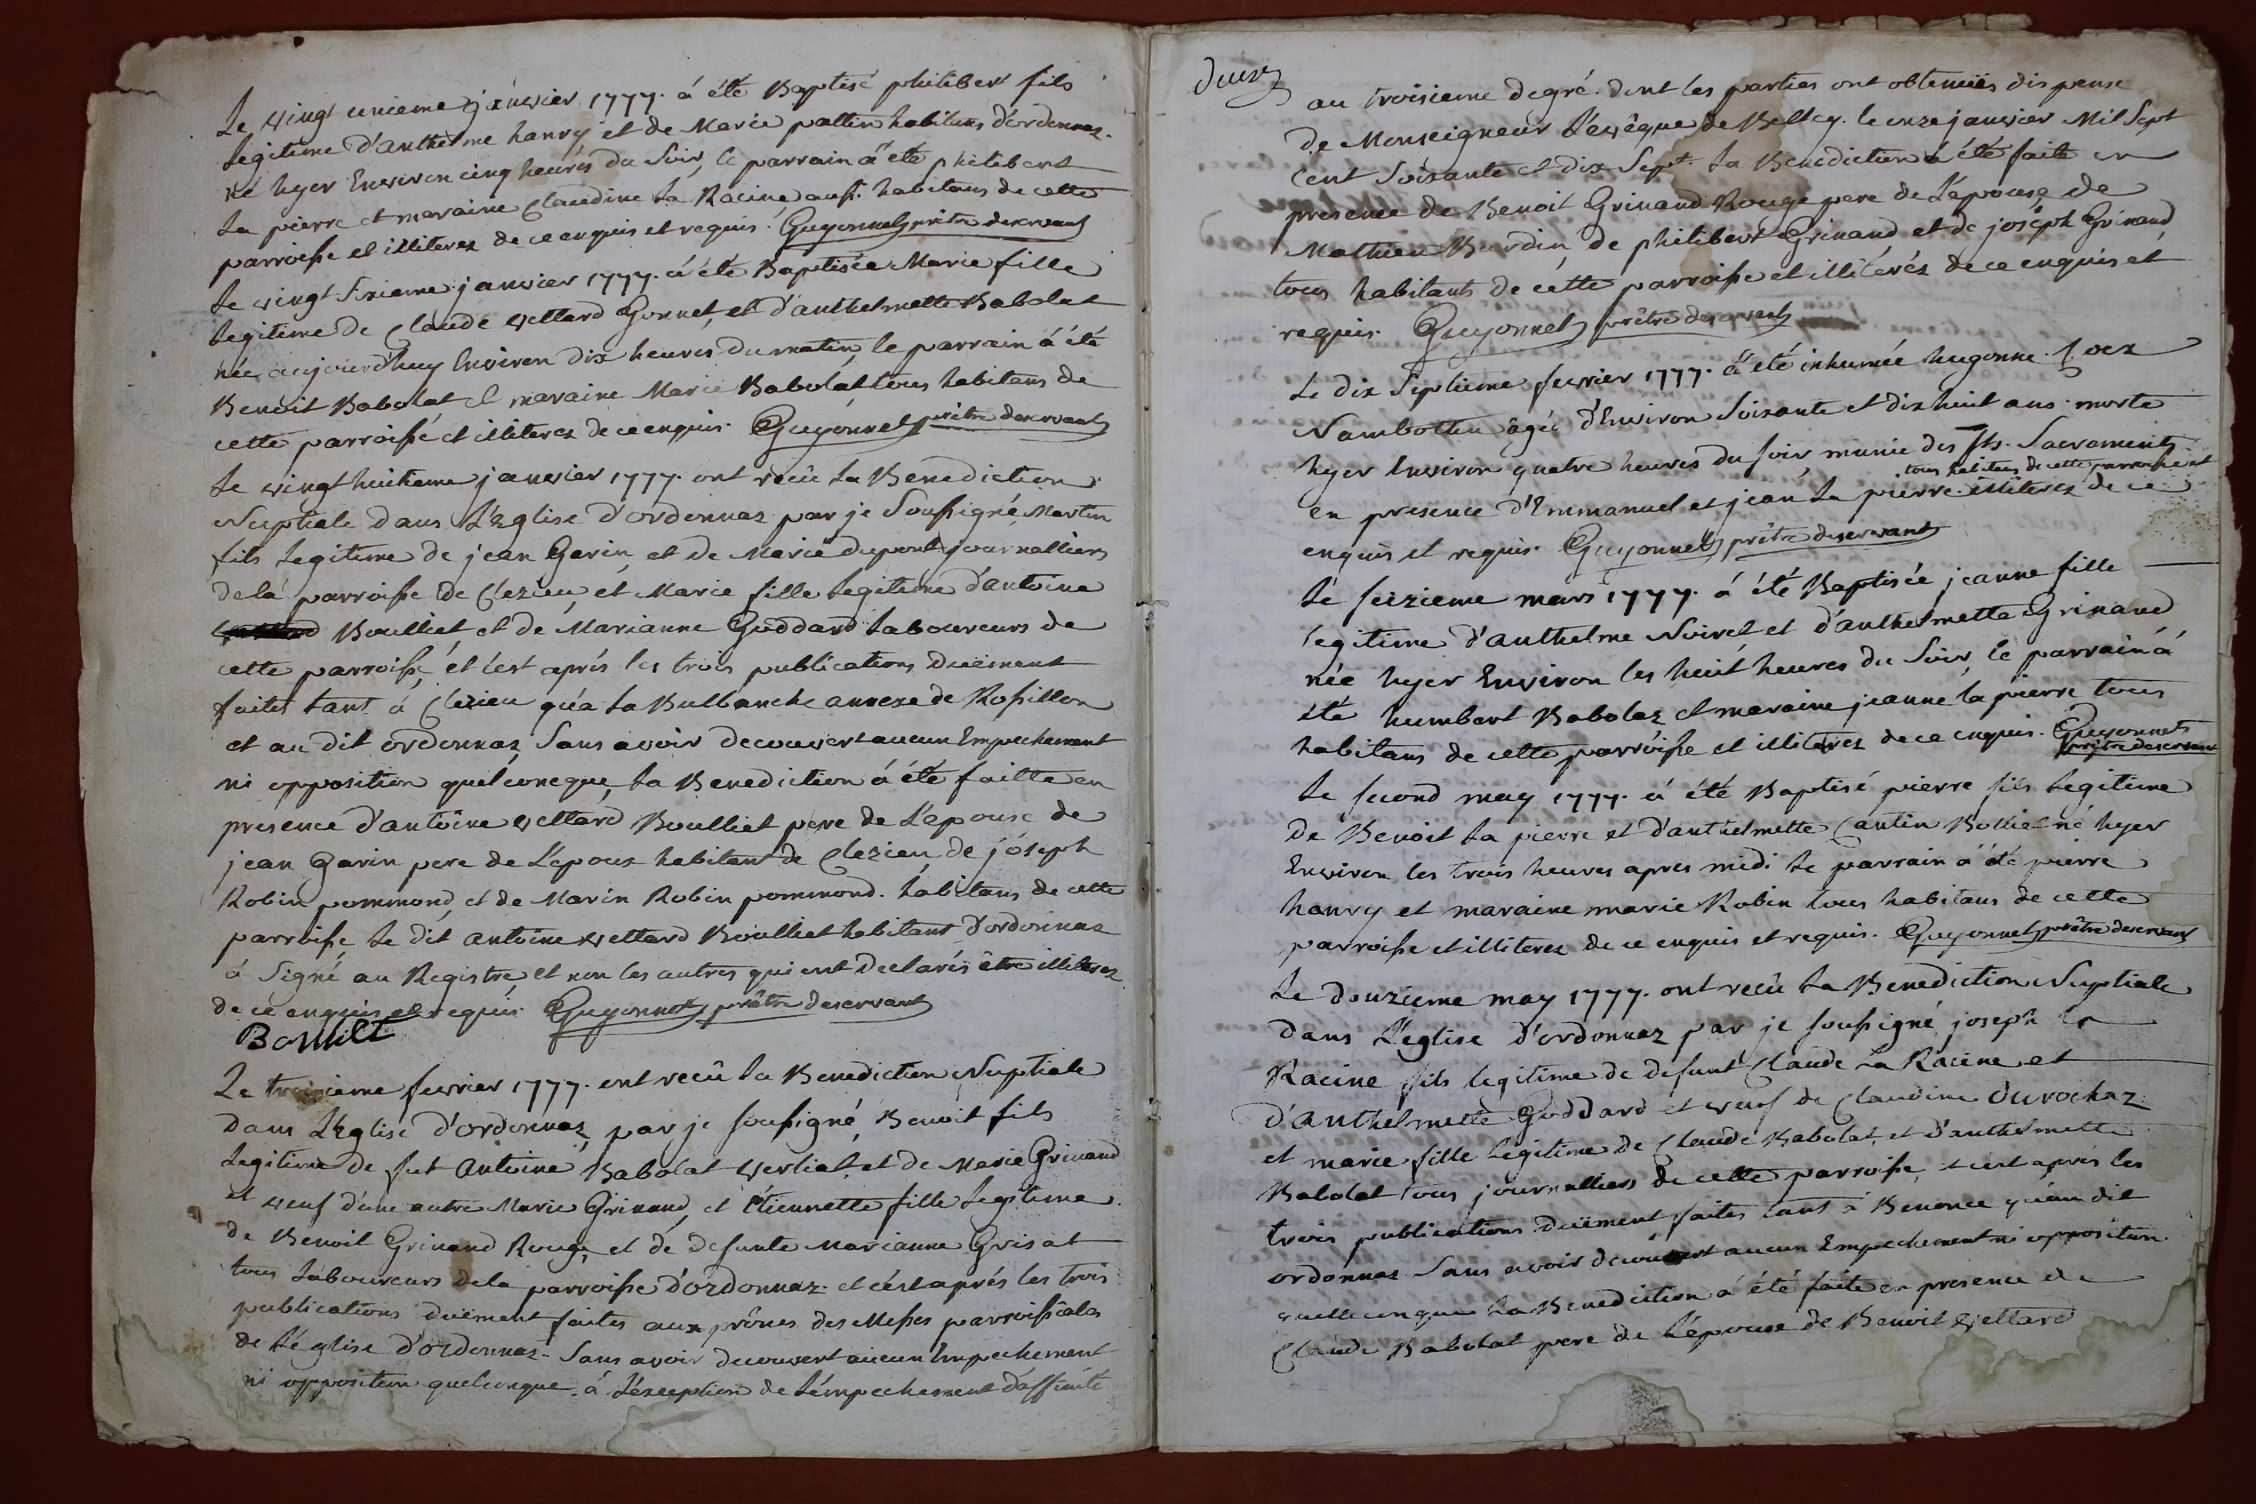 Le vingt unieme janvier 1777. á été Baptisé philiber fils
Legitime d'anthelme hanry et de Marie pattin habitans d'ordonnaz.
né hyer Environ cinq heures du Soir, le parrain á été philibert
La pierre et maraine Claudine La Racine aussi habitans de cette
parroisse et illiterez de ce enquis et requis. Guyonnet prêtre deservant
Le vingt Sixieme janvier 1777. á été Baptisée Marie fille
legitime de Claude vettard Gonnet, et d'anthelmette Babolat
née aujourd'huy Environ dix heures du matin, le parrain á été
Benoit Babolat et maraine Marie Babolat tous habitans de
cette parroisse et illiterez de ce enquis. Guyonnet prêtre deservant
Le vingt huitieme janvier 1777. ont reçû La Benediction
Nuptiale dans L'Eglise d'ordonnaz par je Soussigné Martin
fils Legitime de jean Garin, et de Marie dupont journalliers
de la parroisse de Clezieu, et Marie fille Legitime d'antoine
Boulliet et de Marianne Goddard Laboureurs de
cette parroisse, et c'est aprés les trois publications duëment
faites tant á Clezieu qu'a La Balbanche annexe de Rossillon
et au dit ordonnaz, Sans avoir decouvert aucun Empechement
ni opposition quelconque, La Benediction á été faitte en
presence d'antoine vettard Boulliet pere de L'epouse de
jean Garin pere de L'epoux habitant de Clezieu de joseph
Robin pommond, et de Marin Robin pommond. habitans de cette
parroisse Le dit antoine vettard Boulliet habitant d'ordonnaz
á Signé au Registre, et non les autres qui ont declarés être illiterez
de ce enquis et requis. Guyonnet prêtre deservant
Boulliet
Le troisieme fevrier 1777. ont reçû La Benediction Nuptiale
dans L'Eglise d'ordonnaz par je soussigné, Benoit fils
Legitime de fut antoine Babolat verliat et de Marie Grinand
et veuf d'une autre Marie Grinand, et Etiennette fille Legitime
de Benoit Grinand Rouge et de defunte Marianne Grisat
tous Laboureurs de la parroisse d'ordonnaz. et c'est aprés les trois
publications duëment faites aux prônes des Messes parroissiales
de L'église d'ordonnaz. Sans avoir decouvert aucun Empechement
ni opposition quelconque á L'éxception de L'émpechement d'affinité
au troisieme degré. dont les parties ont obtenuës dispense
de Monseigneur L'evêque de Belley. le onze janvier Mil Sept
Cent Soixante et dix Sept. La Benediction á été faite en
presence de Benoit Grinand Rouge pere de L'épouse, de
Mathieu Burdin, de philibert Grinand, et de joseph Grinand
tous habitants de cétte parroisse et illitérés de ce enquis et
requis. Guyonnet prêtre deservant
Le dix Septieme fevrier 1777. á été inhumée hugonne
Nambotton âgée d'Environ Soixante et dix huit ans. morte
hyer Environ quatre heures du soir, munie des Sts. Sacrements
en presence d'Emmanuel et jean La pierre. tous habitans de cette parroisse et illiterez de ce
enquis et requis. Guyonnet prêtre deservant
Le seizieme mars 1777. á été Baptisée jeanne fille
legitime d'anthelme Noiret et d'anthelmette Grinand
née hyer Environ les huit heures du Soir, le parrain á
été humbert Babolaz et maraine jeanne la pierre tous
habitans de cette parroisse et illiterez de ce enquis. Guyonnet
prêtre deservant
Le second may 1777. á été Baptisé pierre fils Legitime
de Benoit La pierre et d'anthelmette Cantin Bolliet né hyer
Environ les trois heures apres midi Le parrain á été pierre
hanry et maraine marie Robin tous habitans de cette
parroisse et illiterez de ce enquis et requis. Guyonnet prêtre deservant
Le douzieme may 1777. ont reçû La Benediction Nuptiale
dans L'église d'ordonnaz par je soussigné, joseph la
Racine fils legitime de defunt Claude La Racine et
d'anthelmette Goddard et veuf de Claudine durochaz
et marie fille Légitime de Claude Babolat, et d'anthelmette
Babolat tous journalliers de cette parroisse, et c'est aprés les
trois publications duëment faites tant á Benonce qu'au dit
ordonnaz. Sans avoir decouvert aucun Empechement ni opposition
quelleconque La Benediction á été faite en presence de
Claude Babolat pere de L'épouse de Benoit Vettard